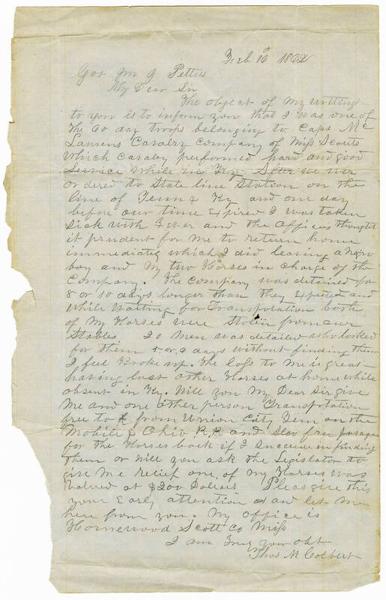 Feb 10 1862
Gov Jno J Pettus
My Dear Sir
The object of my writing
to you is to inform you that I was one of
the 60 day troops belonging to Capt Mc
Lauruns Cavalry Company of Miss Scouts
which Cavalry performed hard and good
Service while in Ky. After we was
ordered to State line Station on the
line of Tenn & Ky and one day
before our time Expired I was taken
Sick with Fever and the Officers thought
it prudent for Me to return home
immediately which I did leaving a negro
boy and My two Horses in charge of the
Company. The Company was detained for
8 or 10 days longer than they Expected and
while Waiting for Transportation both
of My Horses were Stolen from our
Stables. 20 Men was detailed who looked
for them 8 or 9 days without finding them
I feel Broke up. The loss to Me is great
having lost other Horses at home while
absent in Ky. Will you My Dear Sir give
Me and one other person Transportation
free to & from Union City Tenn on the
Mobile & Ohio R.R. and also free passage
for the Horses back if I Succeed in finding
them or Will you ask the Legislator to
give Me relief one of my Horses was
Valued at $200 Dollars Please give this
your Early attention and let me
here from you. My office is
Homewood Scott Co Miss
I am Truly your obt
Thos M Colbert